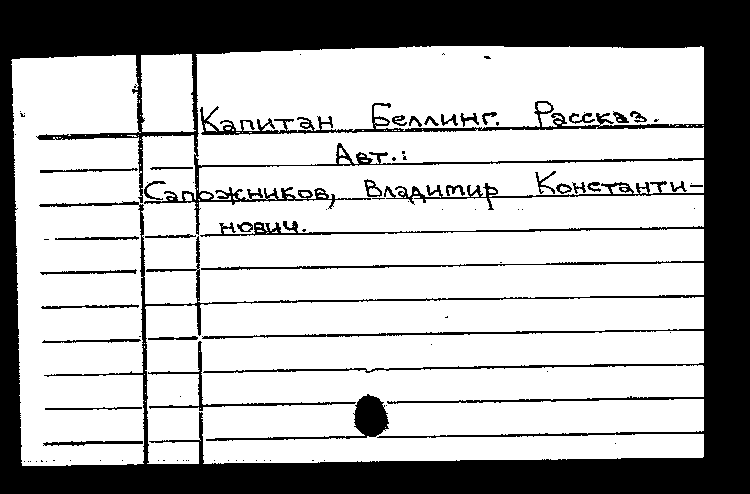 Капитан Беллинг. Рассказ.
Авт.:
Сапожников, Владимир Константи-
нович.